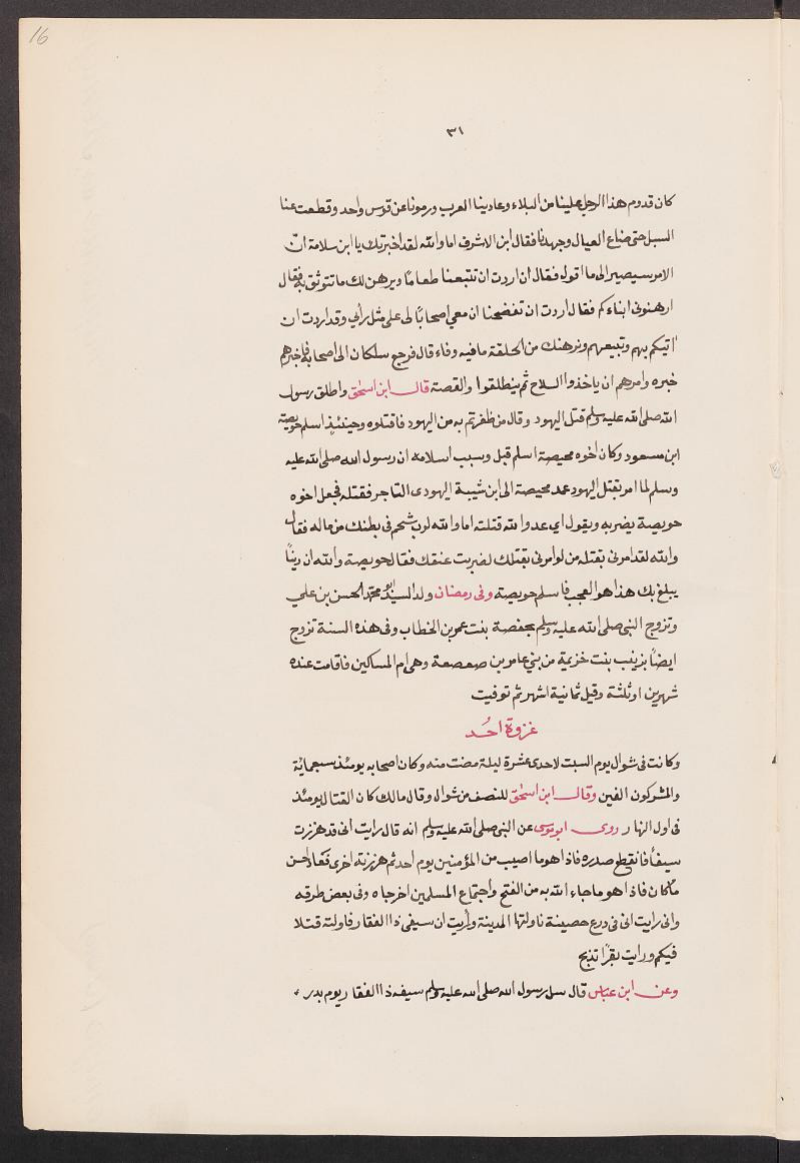 16
٣١
كان قدوم هذا الرجل علينا من البلاء وعادينا العرب ورمونا عن قوس واحد وقطعت عنا
السبل حتى ضاع العيال وجهدنا فقال ابن الاشرف اما والله لقد اخبرتك يا ابن سلامة ان
الامر سيصير الى ما اقول فقال ان اردت ان تتبعنا طعاما ويرهن لك ما تتوثق به فقال
ارهنونى ابناءكم فقال اردت ان تفضحنا ان معي اصحابًا لى على مثل رأى وقد اردت ان
اتيكم بهم وتبيعهم ونرهنك من الحلقة ما فيه وفاء قال فرجع سلكان الى اصحابه فاخبرهم
خبره وامرهم ان ياخذوا السلاح ثم ينطلقوا والقصة قال ابن اسحق واطلق رسول
الله صلى الله عليه وسلم قتل اليهود وقال من ظفرتم به من اليهود فاقتلوه وحينئذ اسلم حويصة
ابن مسعود وكان اخوه محيصة اسلم قبل وسبب اسلامه ان رسول الله صلى الله عليه
وسلم لما امر بقتل اليهود عمد محيصة الى ابن شيبة اليهودى التاجر فقتله فجعل اخوه
حويصة يضربه ويقول اي عدو الله قتلته اما والله لرب شحم فى بطنك من ماله فقال
والله لقد امرنى بقتله من لو امرنى بقتلك لضربت عنقك فقال حويصة والله ان دينًا
يبلغ بك هذا هو العجب فاسلم حويصة وفى رمضان ولد السيد ابو محمد الحسن بن علي
وتزوج النبى صلى الله عليه وسلم بحفصة بنت عمر بن الخطاب وفى هذه السنة تزوج
ايضاً بزينب بنت خزيمة من بني عامر بن صعصعة وهى ام المساكين فاقامت عنده
شهرين او ثلثة وقيل ثمانية اشهر ثم توفيت
غزوة احُد
وكانت فى شوال يوم السبت لاحدى عشرة ليلة مضت منه وكان اصحابه يومئذ سبعمائة
والمشركون الفين وقال ابن اسحق للنصف من شوال وقال مالك كان القتال يومئذ
فى اول النهار روى ابو موسى عن النبى صلى الله عليه وسلم انه قال رايت انى قد هززت
سيفاً فانقطع صدره فاذا هو ما اصيب من المؤمنين يوم احد ثم هززته اخرى فعاد احسن
ما كان فاذا هو ما جاء الله به من الفتح واجتماع المسلمين اخرجاه وفى بعض طرقه
وانى رايت انى فى درع حصينة ناولتها المدينة وأريت ان سيفى ذا الفقار فاولته قتلا
فيكم ورايت بقرًا تذبح
وعن ابن عباس قال سل رسول الله صلى الله عليه وسلم سيفه ذا الفقار يوم بدر